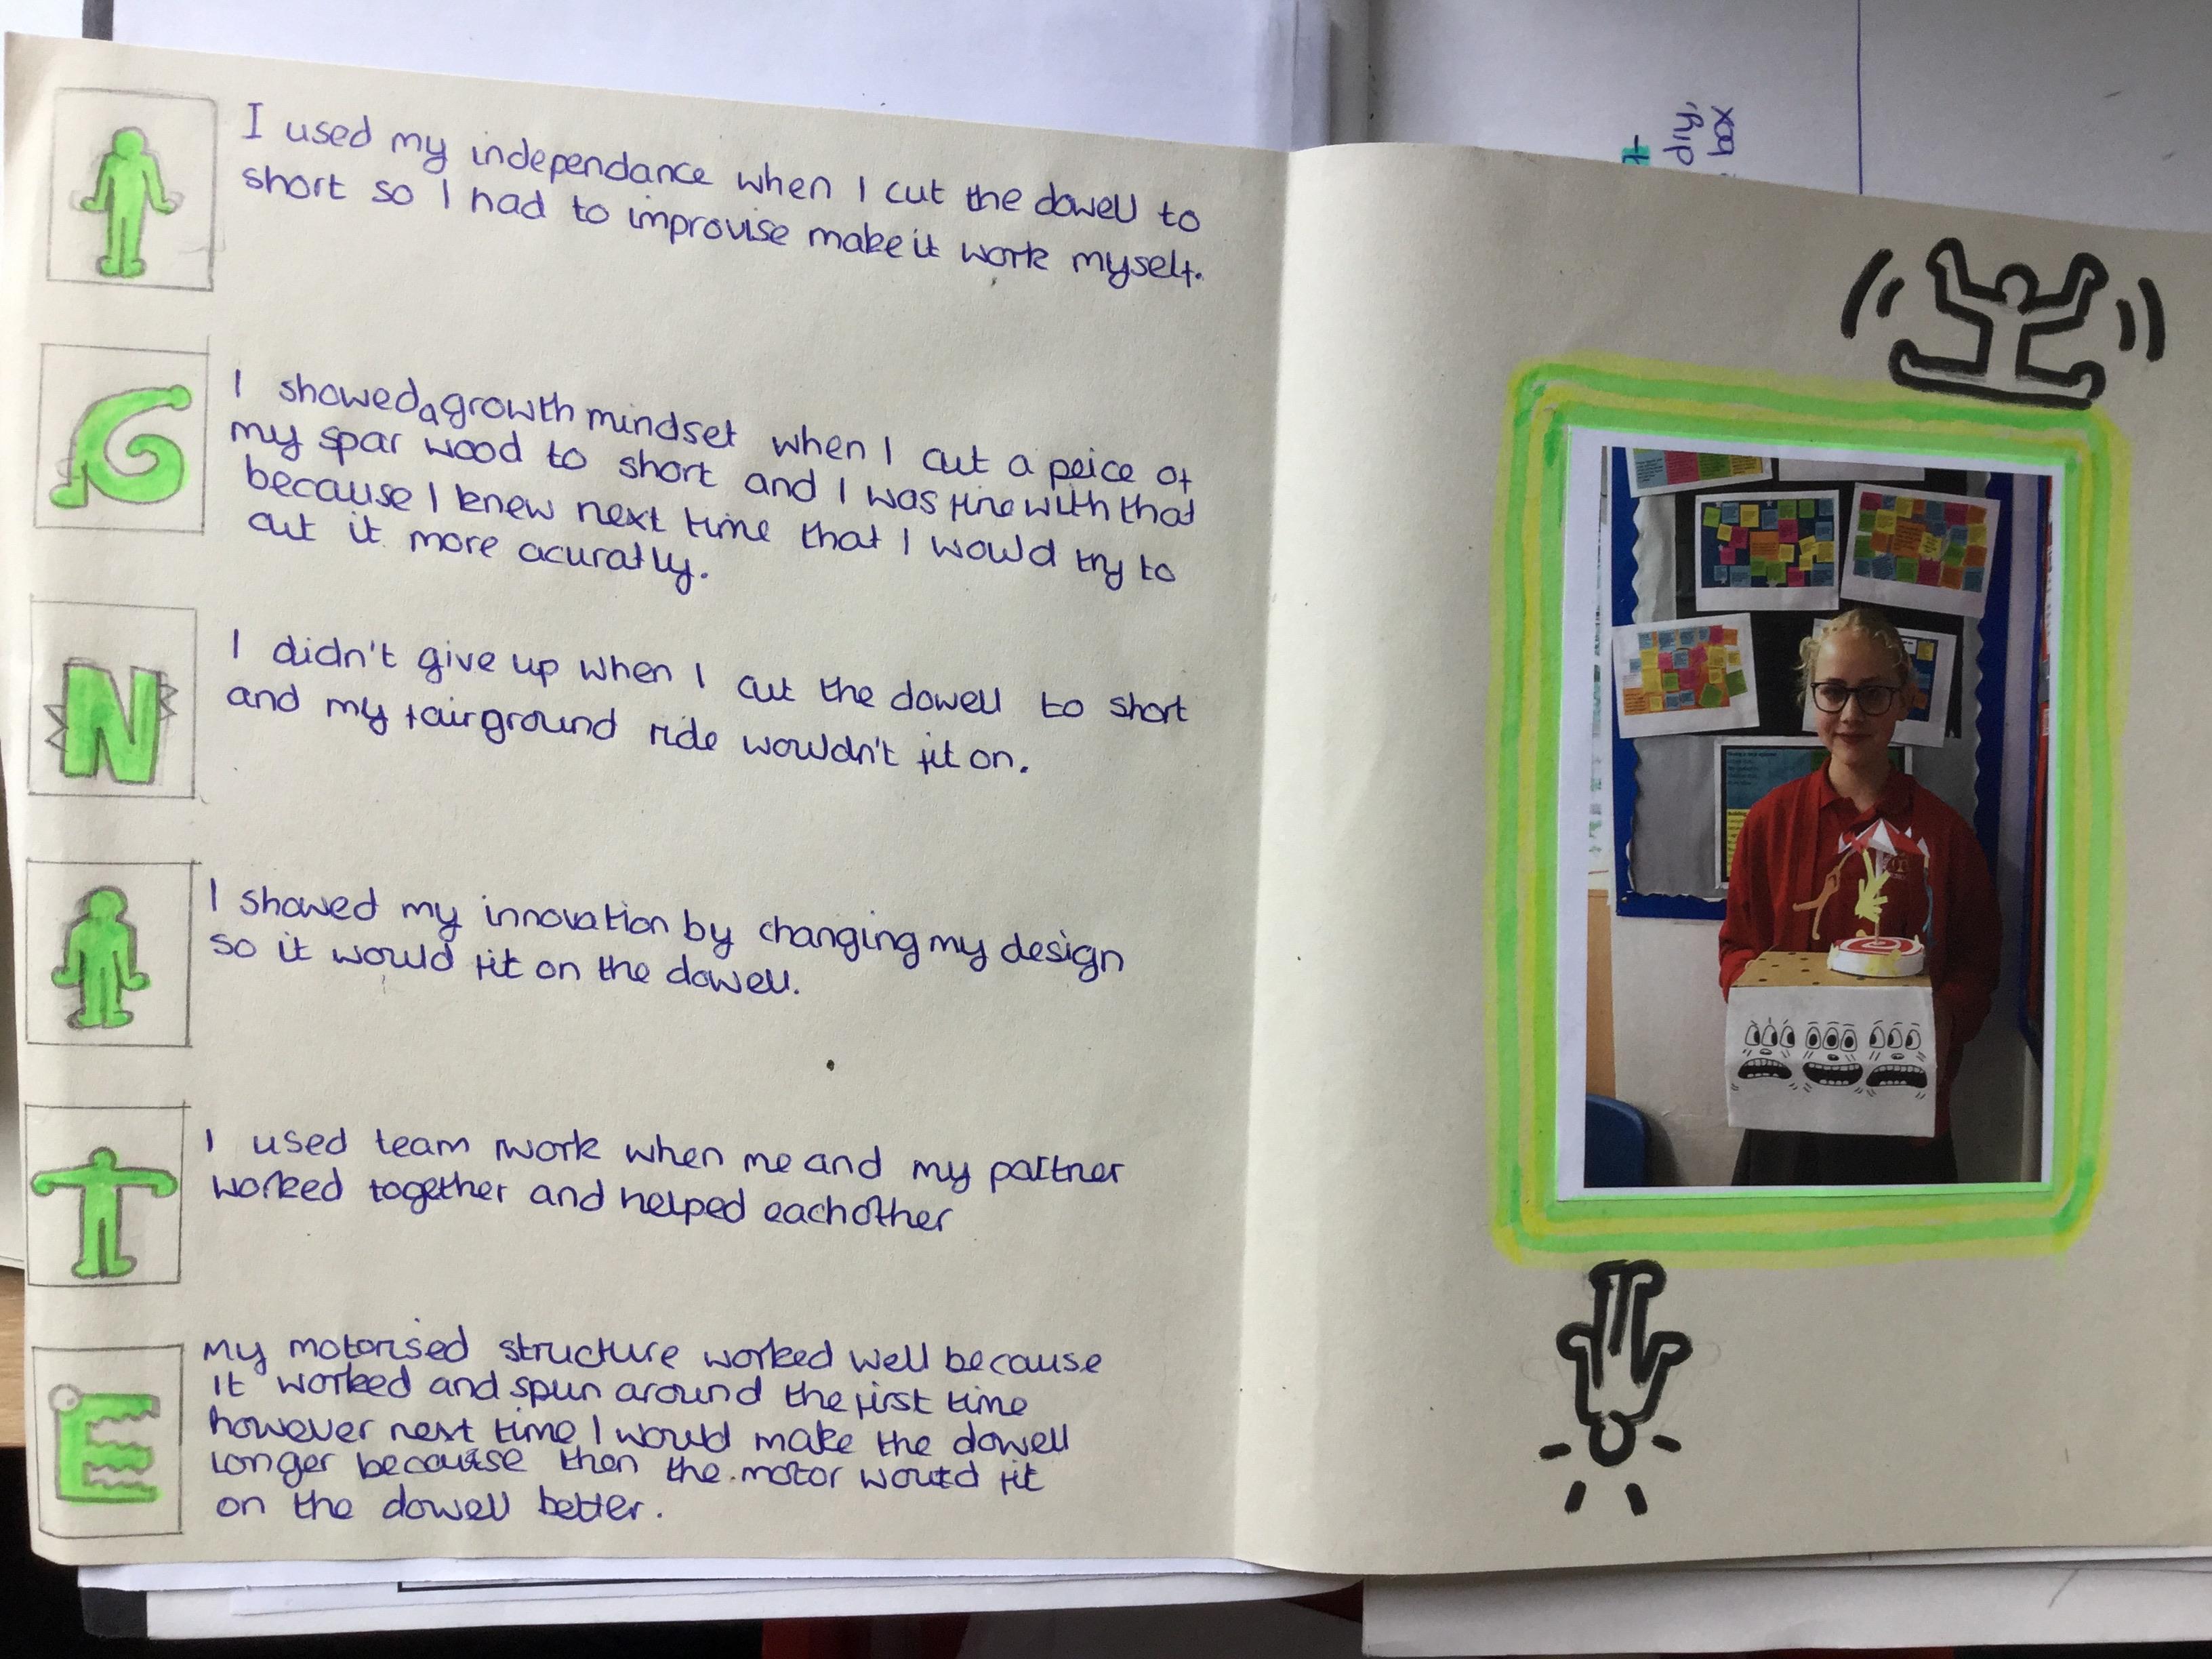 I
I used my independance when I cut the dowell to
short so I had to improvise make it work myself.
G
I showed a growth mindset when I cut a peice of
my spar wood to short and I was fine with that
because I knew next time that I would try to
cut it more acuratly.
N
I didn't give up when I cut the dowell to short
and my fairground ride wouldn't fit on.
I
I showed my innovation by changing my design
so it would fit on the dowell.
T
I used team work when me and my partner
worked together and helped eachother
E
My motorised structure worked well because
it worked and spun around the first time
however next time I would make the dowell
longer because then the motor would fit
on the dowell better.
diy,
box